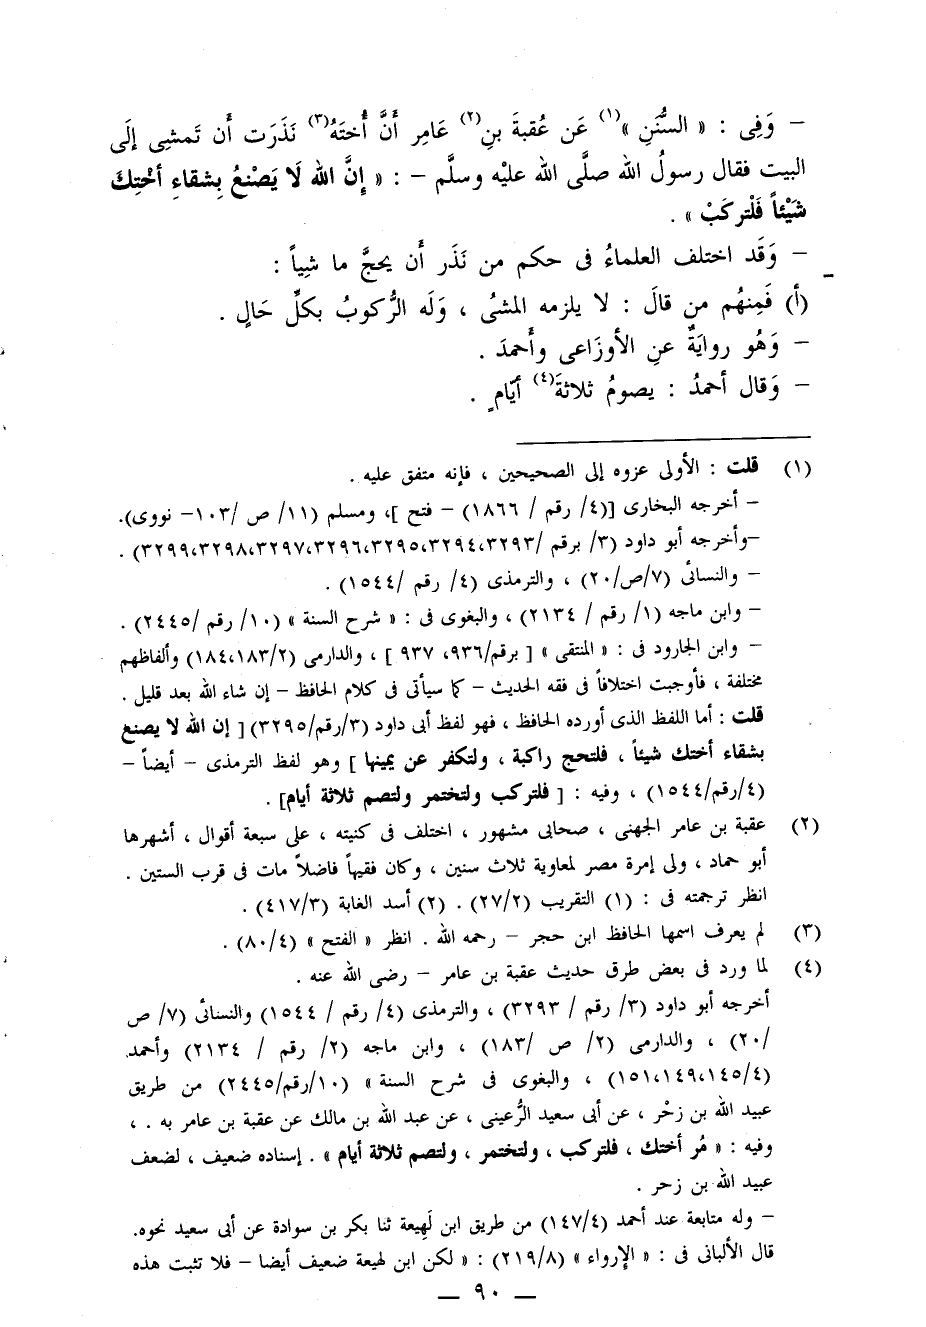 – وَفِى : « السُّنَنِ »(١) عَن عُقبةَ بنِ(٢) عَامِر أَنَّ أُختَهُ(٣) نَذَرَت أَن تَمشِى إلَى
البيت فقال رسولُ الله صلَّى الله عليْه وسلَّم – : « إِنَّ الله لَا يَصْنعُ بِشقاءِ أخْتِكَ
شَيْئاً فَلْتركَبْ » .
– وَقَد اختلف العلماءُ فى حكم من نَذَر أَن يحجَّ ما شِياً :
(أ) فَمِنهُم من قالَ : لا يلزمه المشىُ ، وَله الرُّكوبُ بكلِّ حَالٍ .
– وَهُو روايَةٌ عنِ الأوزَاعى وأَحمدَ .
– وَقال أحمدُ : يصومُ ثلاثةَ(٤) أيّامٍ .
(١) قلت : الأولى عزوه إلى الصحيحين ، فإنه متفق عليه .
– أخرجه البخارى [(٤/ رقم / ١٨٦٦) – فتح ]، ومسلم (١١/ ص /١٠٣– نووى).
–وأخرجه أبو داود (٣/ برقم /٣٢٩٣،٣٢٩٤،٣٢٩٥،٣٢٩٦،٣٢٩٧،٣٢٩٨،٣٢٩٩) .
– والنسائى (٧/ص/٢٠) ، والترمذى (٤/ رقم /١٥٤٤) .
– وابن ماجه (١/ رقم / ٢١٣٤) ، والبغوى فى : « شرح السنة » (١٠/ رقم /٢٤٤٥) .
– وابن الجارود فى : « المنتقى » [ برقم/٩٣٦، ٩٣٧ ] ، والدارمى (١٨٣/٢،١٨٤) وألفاظهم
مختلفة ، فأوجبت اختلافاً فى فقه الحديث – كما سيأتى فى كلام الحافظ – إن شاء الله بعد قليل .
قلت : أما اللفظ الذى أورده الحافظ ، فهو لفظ أبى داود (٣/رقم/٣٢٩٥) [ إن الله لا يصنع
بشقاء أختك شيئاً ، فلتحج راكبة ، ولتكفر عن يمينها ] وهو لفظ الترمذى – أيضاً –
(٤/رقم/١٥٤٤) ، وفيه : [ فلتركب ولتختمر ولتصم ثلاثة أيام] .
(٢) عقبة بن عامر الجهنى ، صحابى مشهور ، اختلف فى كنيته ، على سبعة أقوال ، أشهرها
أبو حماد ، ولى إمرة مصر لمعاوية ثلاث سنين ، وكان فقيهاً فاضلاً مات فى قرب الستين .
انظر ترجمته فى : (١) التقريب (٢٧/٢) . (٢) أسد الغابة (٤١٧/٣) .
(٣) لم يعرف اسمها الحافظ ابن حجر – رحمه الله . انظر « الفتح » (٨٠/٤) .
(٤) لما ورد فى بعض طرق حديث عقبة بن عامر – رضى الله عنه .
أخرجه أبو داود (٣/ رقم / ٣٢٩٣) ، والترمذى (٤/ رقم / ١٥٤٤) والنسائى (٧/ ص
/٢٠) ، والدارمى (٢/ ص /١٨٣) ، وابن ماجه (٢/ رقم / ٢١٣٤) وأحمد
(١٤٥/٤،١٤٩،١٥١) ، والبغوى فى شرح السنة » (١٠/رقم/٢٤٤٥) من طريق
عبيد الله بن زحْر ، عن أبى سعيد الرُّعينى ، عن عبد الله بن مالك عن عقبة بن عامر به . ،
وفيه : « مُر أختك ، فلتركب ، ولتختمر ، ولتصم ثلاثة أيام » . إسناده ضعيف ، لضعف
عبيد الله بن زحر .
– وله متابعة عند أحمد (١٤٧/٤) من طريق ابن لَهِيعة ثنا بكر بن سوادة عن أبى سعيد نحوه.
قال الألبانى فى : « الإرواء » (٢١٩/٨) : « لكن ابن لهيعة ضعيف أيضا – فلا تثبت هذه
— ٩٠ —